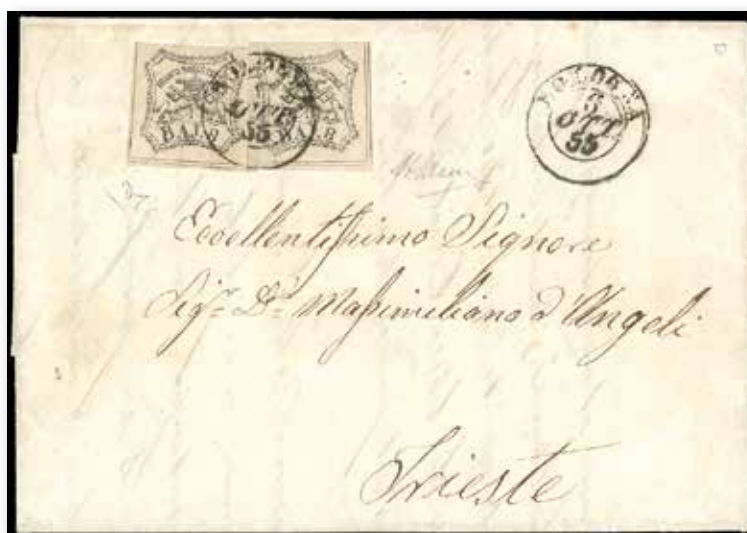 BAJ 8 BAJ 8
BOLOGNA
OTT
55
BOLOGNA
5
OTT
55
Eccellentissimo Signore
Sigr. Dr. Massimiliano d'Angeli
Trieste